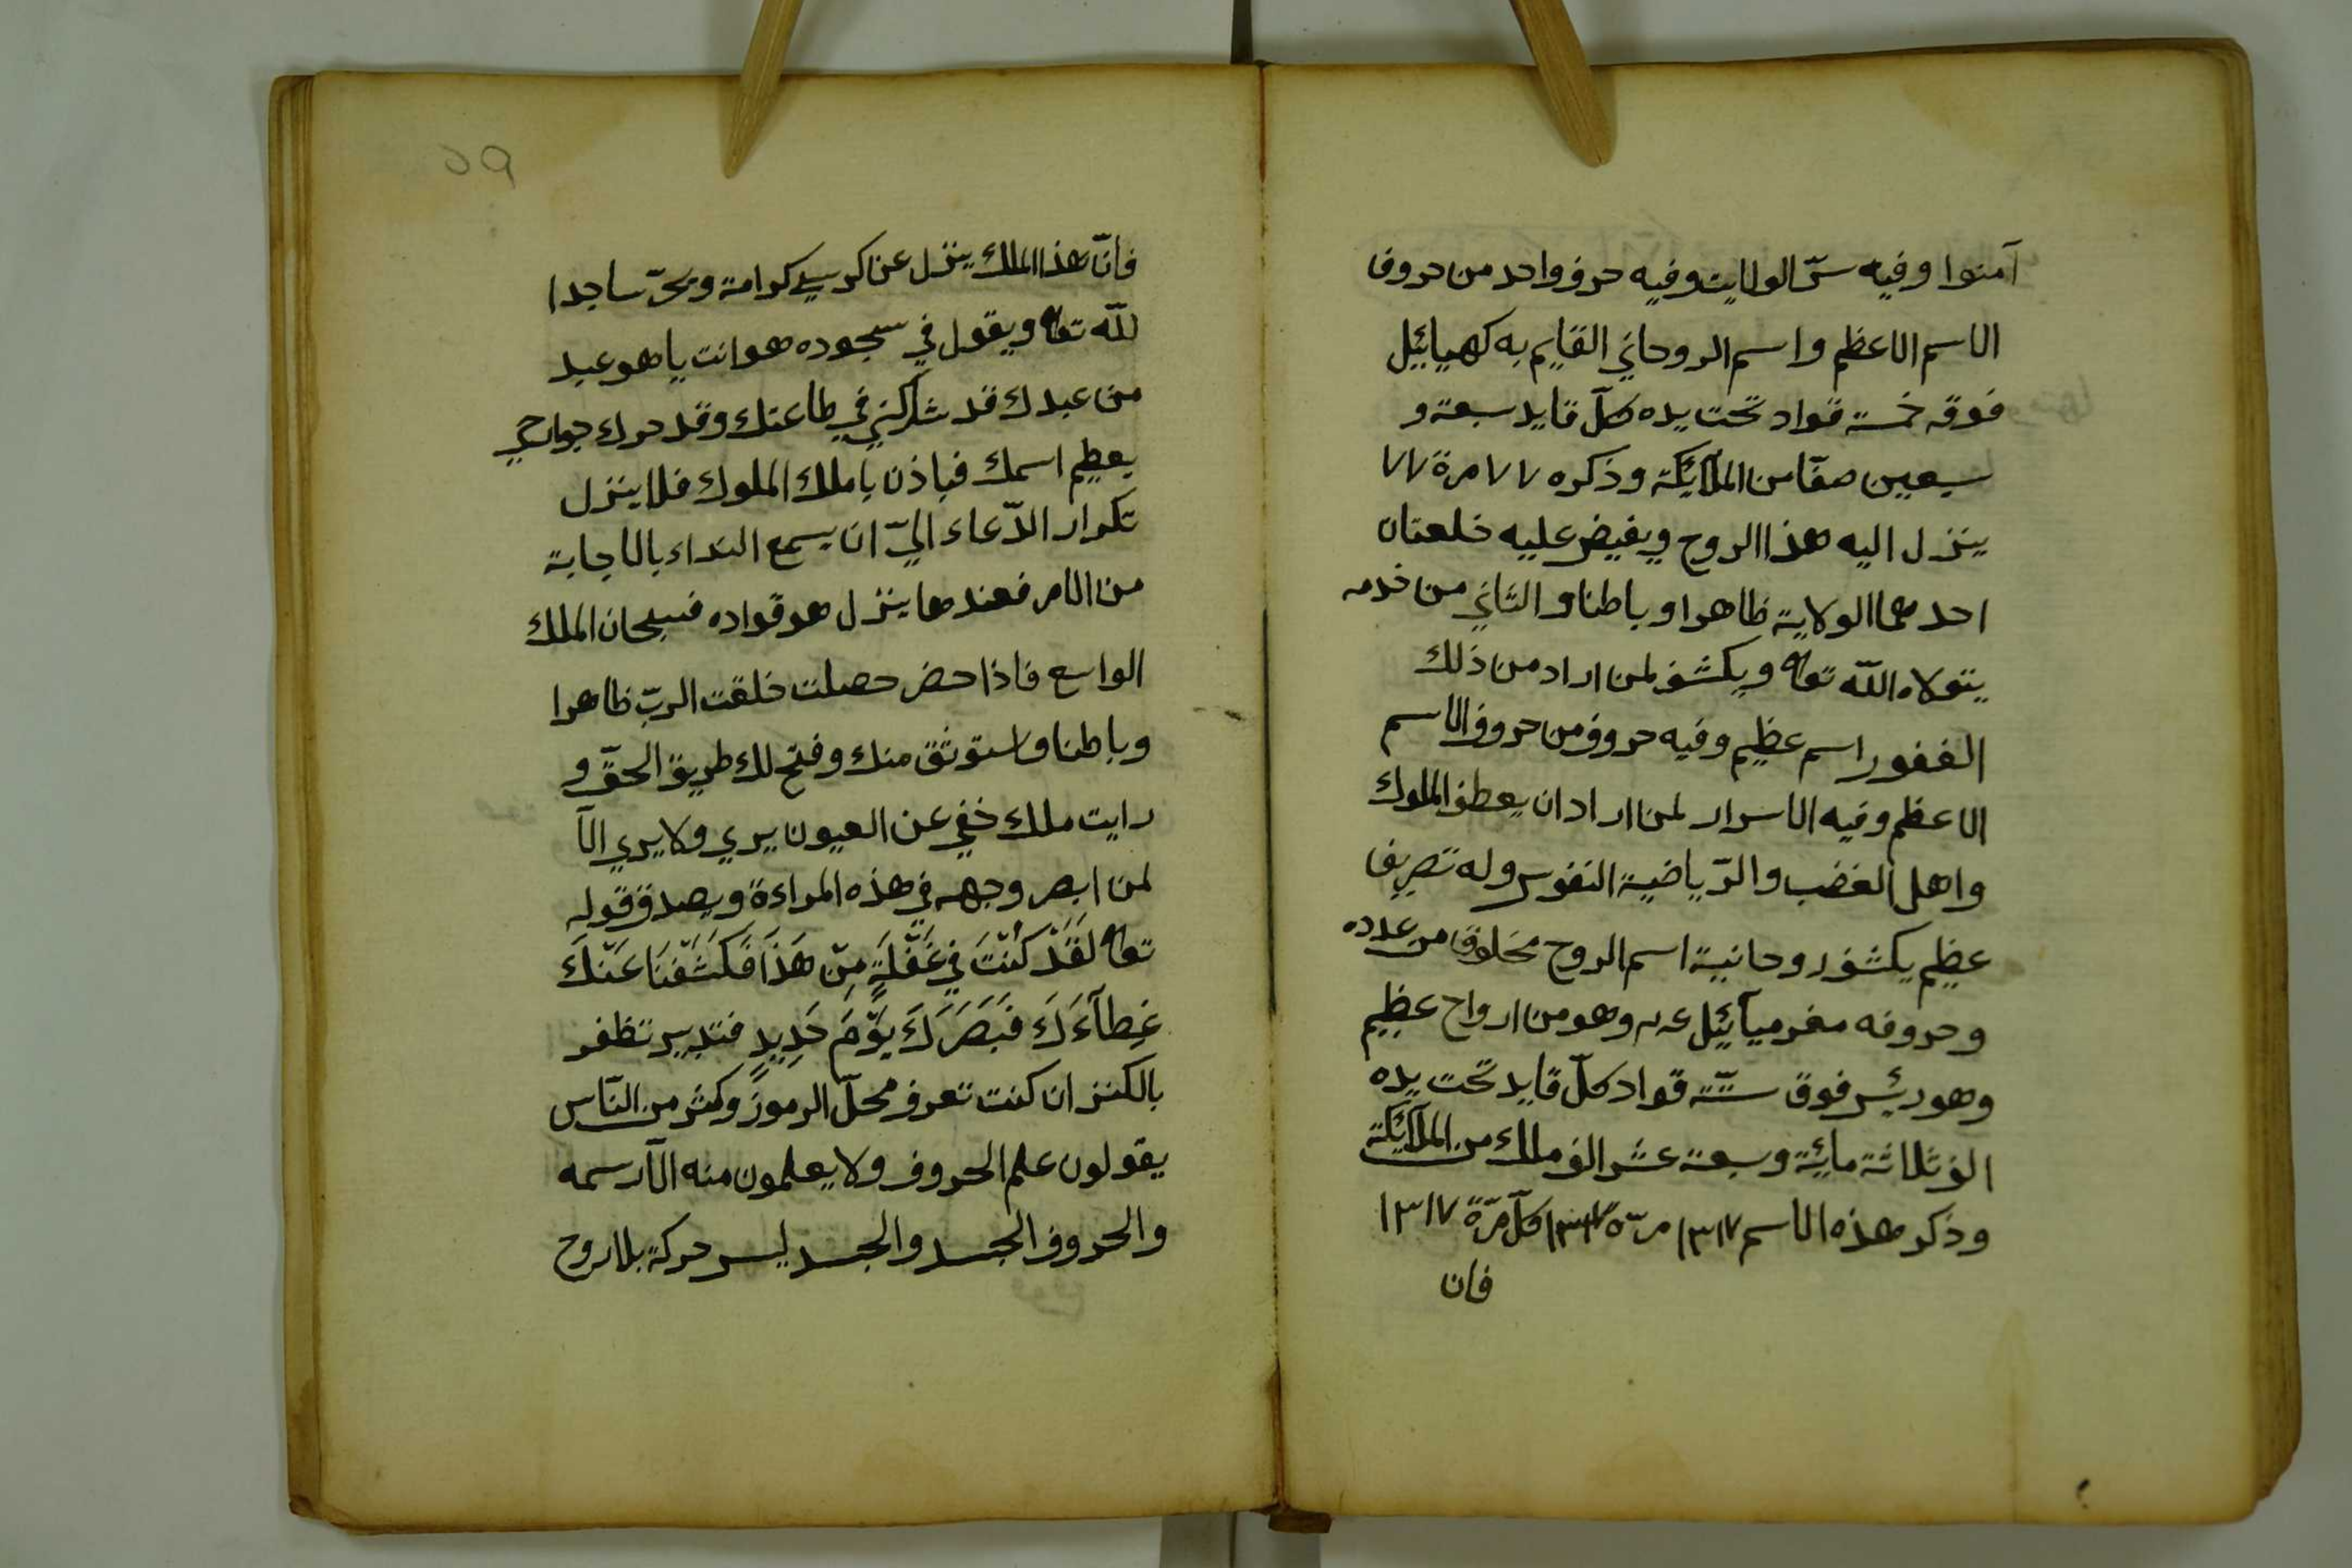 آمنوا وفيه سرّ الولايت وفيه حرف واحد من حروف
الاسم الاعظم واسم الروحاني القايم به كهيائيل
فوقه خمسة قواد تحت يده كلّ قايد سبعة و
سبعين صفّا من الملآئكة وذكره ٧٧ مرة ٧٧
ينزل اليه هذا الروح ويفيض عليه خلعتان
احدهما الولاية ظاهرا وباطنا والثاني من خدمه
يتولاه اللّه تعا ويكشف لمن اراد من ذلك
الغفور اسم عظيم وفيه حروف من حروف الاسم
الاعظم وفيه الاسرار لمن اراد ان يعطف الملوك
واهل الغضب والرّياضية النفوس وله تصريف
عظيم يكشف روحانية اسم الروح مخلوق من عدده
وحروفه مغرميآئيل عم وهو من ارواح عظيم
وهو رئيس فوق ستّة قواد كلّ قايد تحت يده
الف ثلاثة مائية وسبعة عشر الف ملك من الملآئكة
وذكر هذه الاسم ١٣١٧ مرة ١٣١٧ كلّ مرّة ١٣١٧
فان
٥٩
فانّ هذا الملك ينزل عن كرسي كرامة ويخرّ ساجدا
للّه تعا ويقول في سجوده هو انت يا هو عبد
من عبدك قد شاركني في طاعتك وقد حرك جوارحي
بعظيم اسمك فباذن يا ملك الملوك فلا ينزل
تكرار الدّعاء اليّ ان يسمع النداء بالاجابة
من الامر فعندها ينزل هو قواده فسبحان الملك
الواسع فاذا حضر حصلت خلقت الربّ ظاهرا
وباطنا واستوثق منك وفتح لك طريق الحقّ و
رايت ملك خفي عن العيون يري ولا يري الّا
لمن ابصر وجهه في هذه المراءة ويصدق قوله
تعا لَقَدْ كُنْتَ فِي غَفْلَةٍ مِنْ هَذَا فَكَشَفْنَا عَنْكَ
غِطآءَكَ فَبَصَرَكَ يَوْمَ حَدِيدٍ فتدبير تظفر
بالكنز ان كنت تعرف محلّ الرموز وكثر من النّاس
يقولون علم الحروف ولا يعلمون منه الّا رسمه
والحروف الجسد والجسد ليس حركة بلا روح